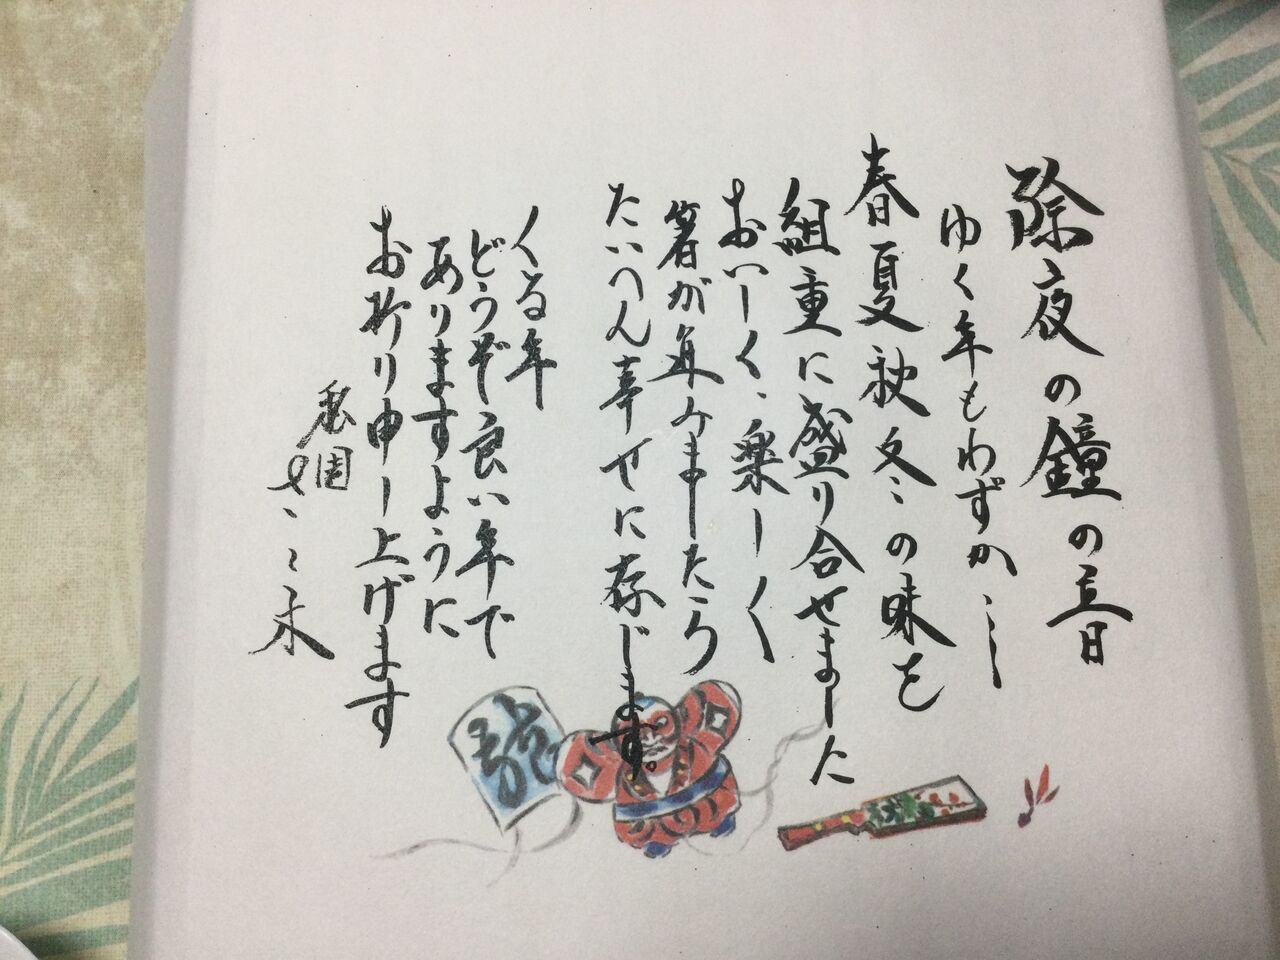 除夜の鐘の音
ゆく年もわずか…
春夏秋冬の味を
組重に盛り合せました
おいしく、楽しく
箸が進みましたら
たいへん幸せに存じます。
くる年
どうぞ良い年で
ありますように
お祈り申し上げます
祇園
さゝ木
龍